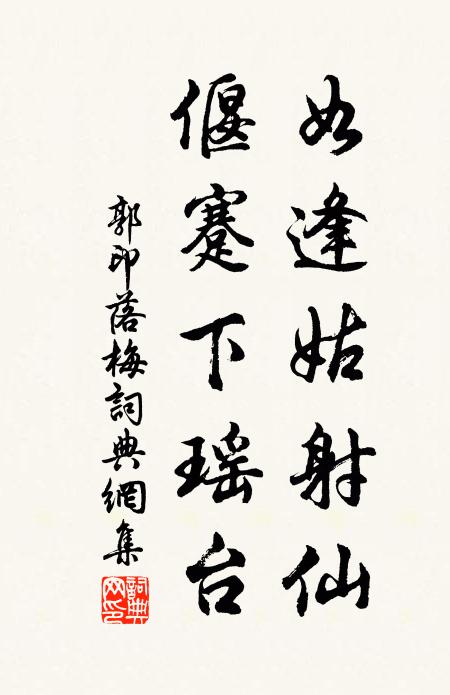 如逢姑射仙
偃蹇下瑶台
郭印落梅詞典網集
詞典网印